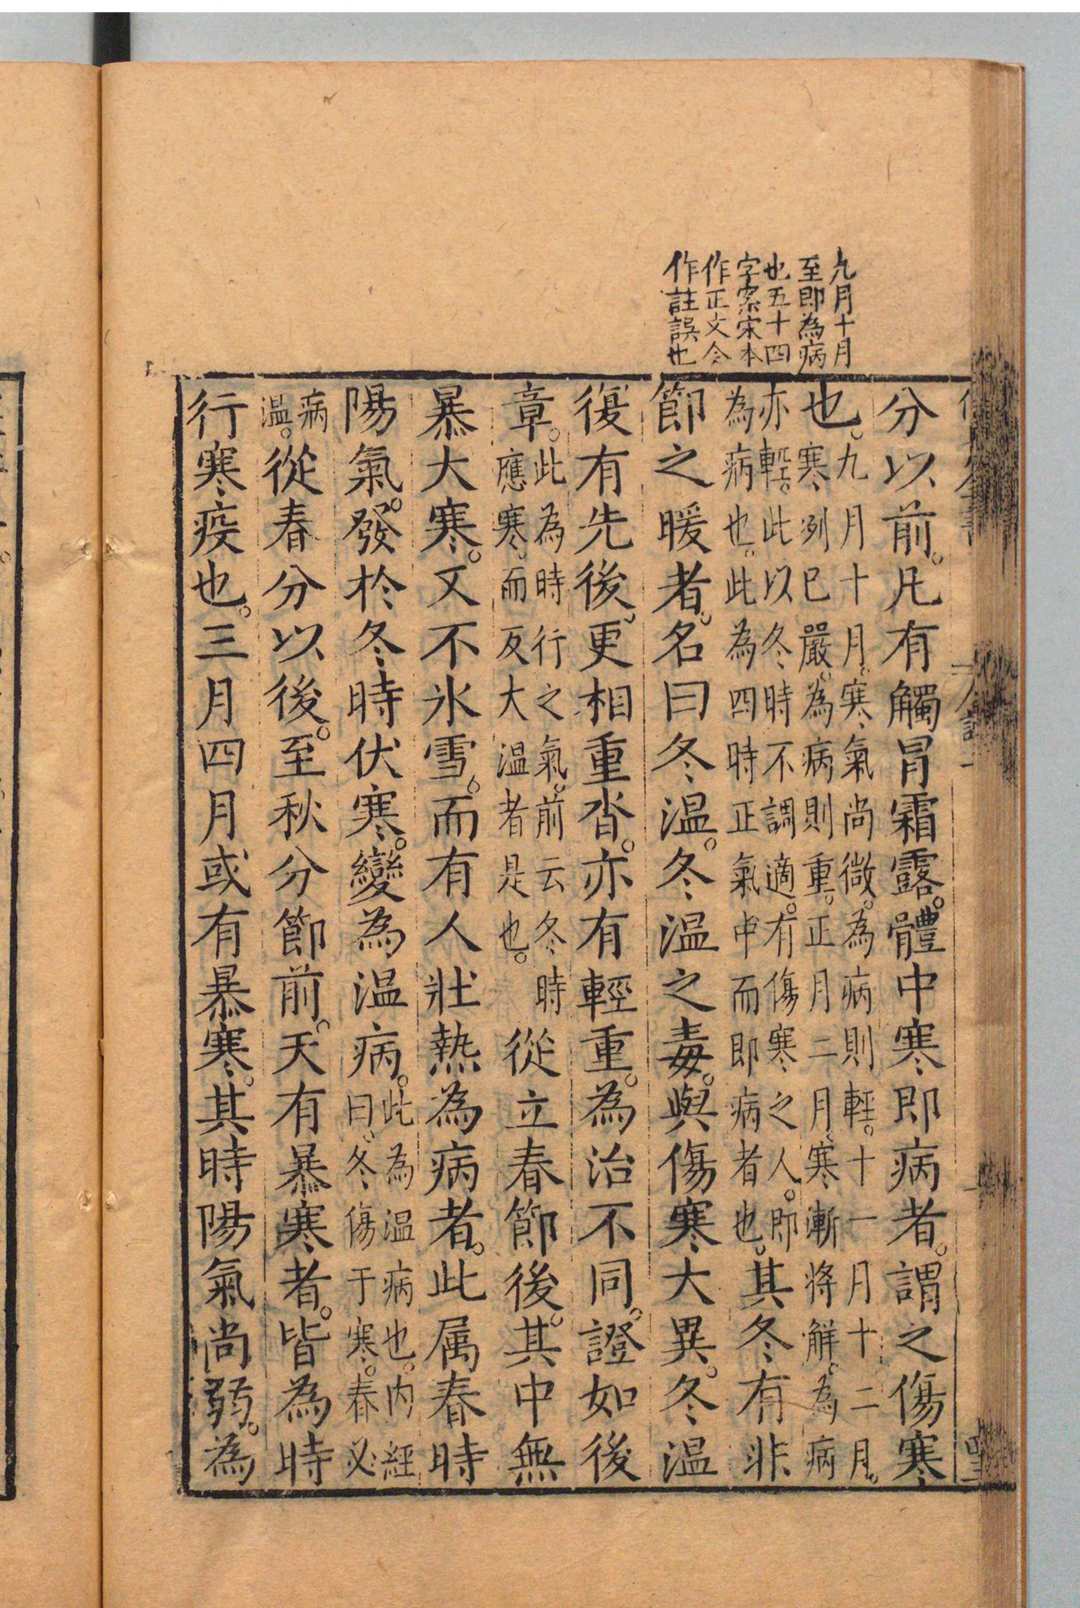 九月十月
至即為病
也五十四
字案宋本
作正文今
作註誤也
分以前。凡有觸冒霜露。體中寒即病者。謂之傷寒
也。九月十月。寒氣尚微。為病則輕。十一月十二月。
寒冽已嚴。為病則重。正月二月。寒漸將解。為病
亦輕。此以冬時不調適。有傷寒之人。即
為病也。此為四時正氣中而即病者也。其冬有非
節之暖者。名曰冬温。冬温之毒。與傷寒大異。冬温
復有先後。更相重沓。亦有輕重。為治不同。證如後
章。此為時行之氣。前云冬時
應寒。而反大温者是也。從立春節後。其中無
暴大寒。又不氷雪。而有人壯熱為病者。此属春時
陽氣。發於冬時伏寒。變為温病。此為温病也。内經
曰。冬傷于寒。春必
病
温。從春分以後。至秋分節前。天有暴寒者。皆為時
行寒疫也。三月四月或有暴寒。其時陽氣尚弱。為